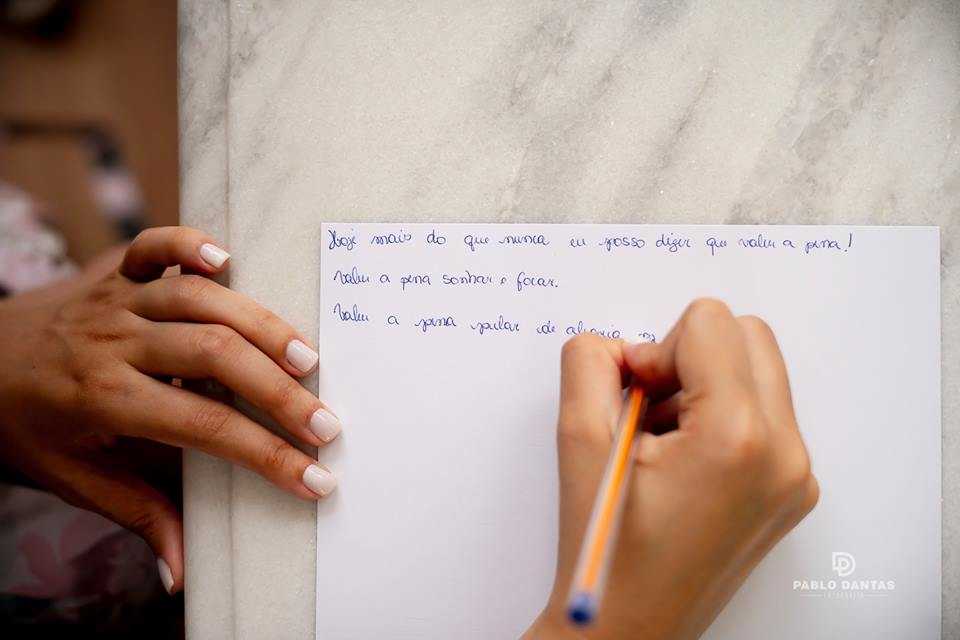 Hoje mais do que nunca eu posso dizer que valeu a pena!
Valeu a pena sonhar e focar.
Valeu a pena pular de alegria
PABLO DANTAS
FOTOGRAFIA